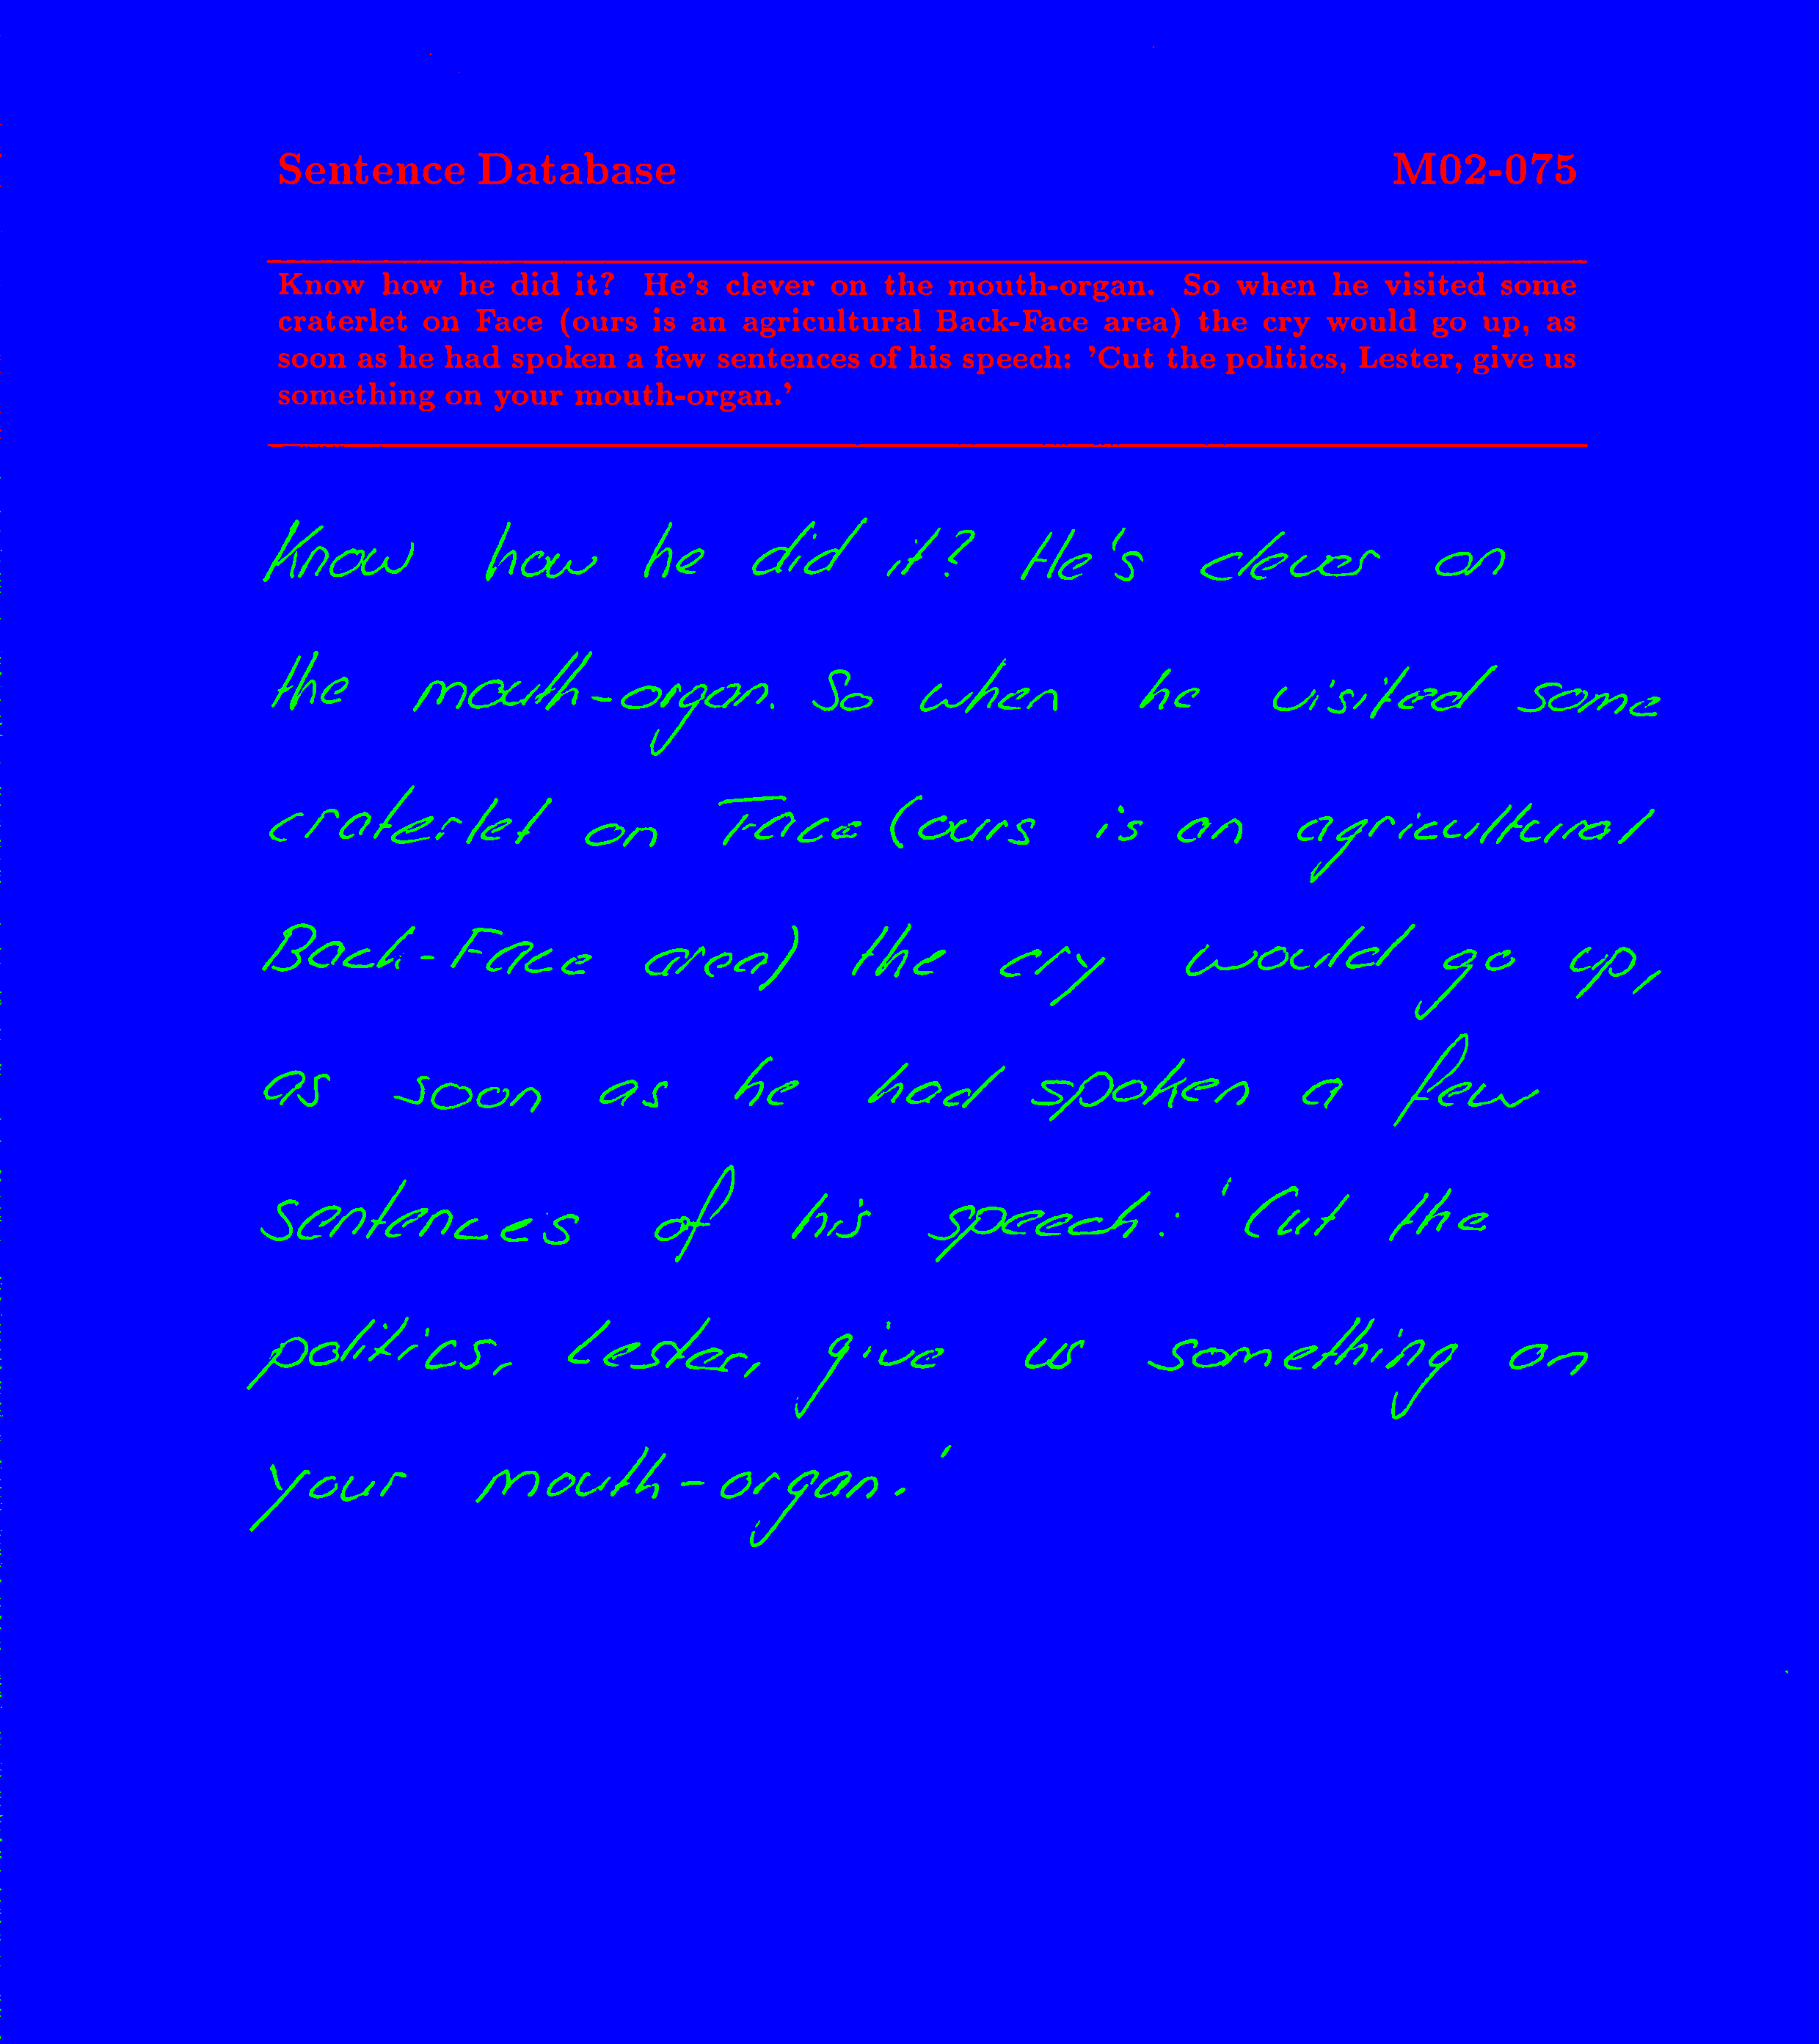 Sentence Database M02-075
Know how he did it? He's clever on the mouth-organ. So when he visited some
craterlet on Face (ours is an agricultural Back-Face area) the cry would go up, as
soon as he had spoken a few sentences of his speech: 'Cut the politics, Lester, give us
something on your mouth-organ.'
Know how he did it? He's clever on
the mouth-organ. So when he visited some
craterlet on Face (ours is an agricultural
Back-Face area) the cry would go up,
as soon as he had spoken a few
sentences of his speech: 'Cut the
politics, Lester, give us something on
your mouth-organ.'